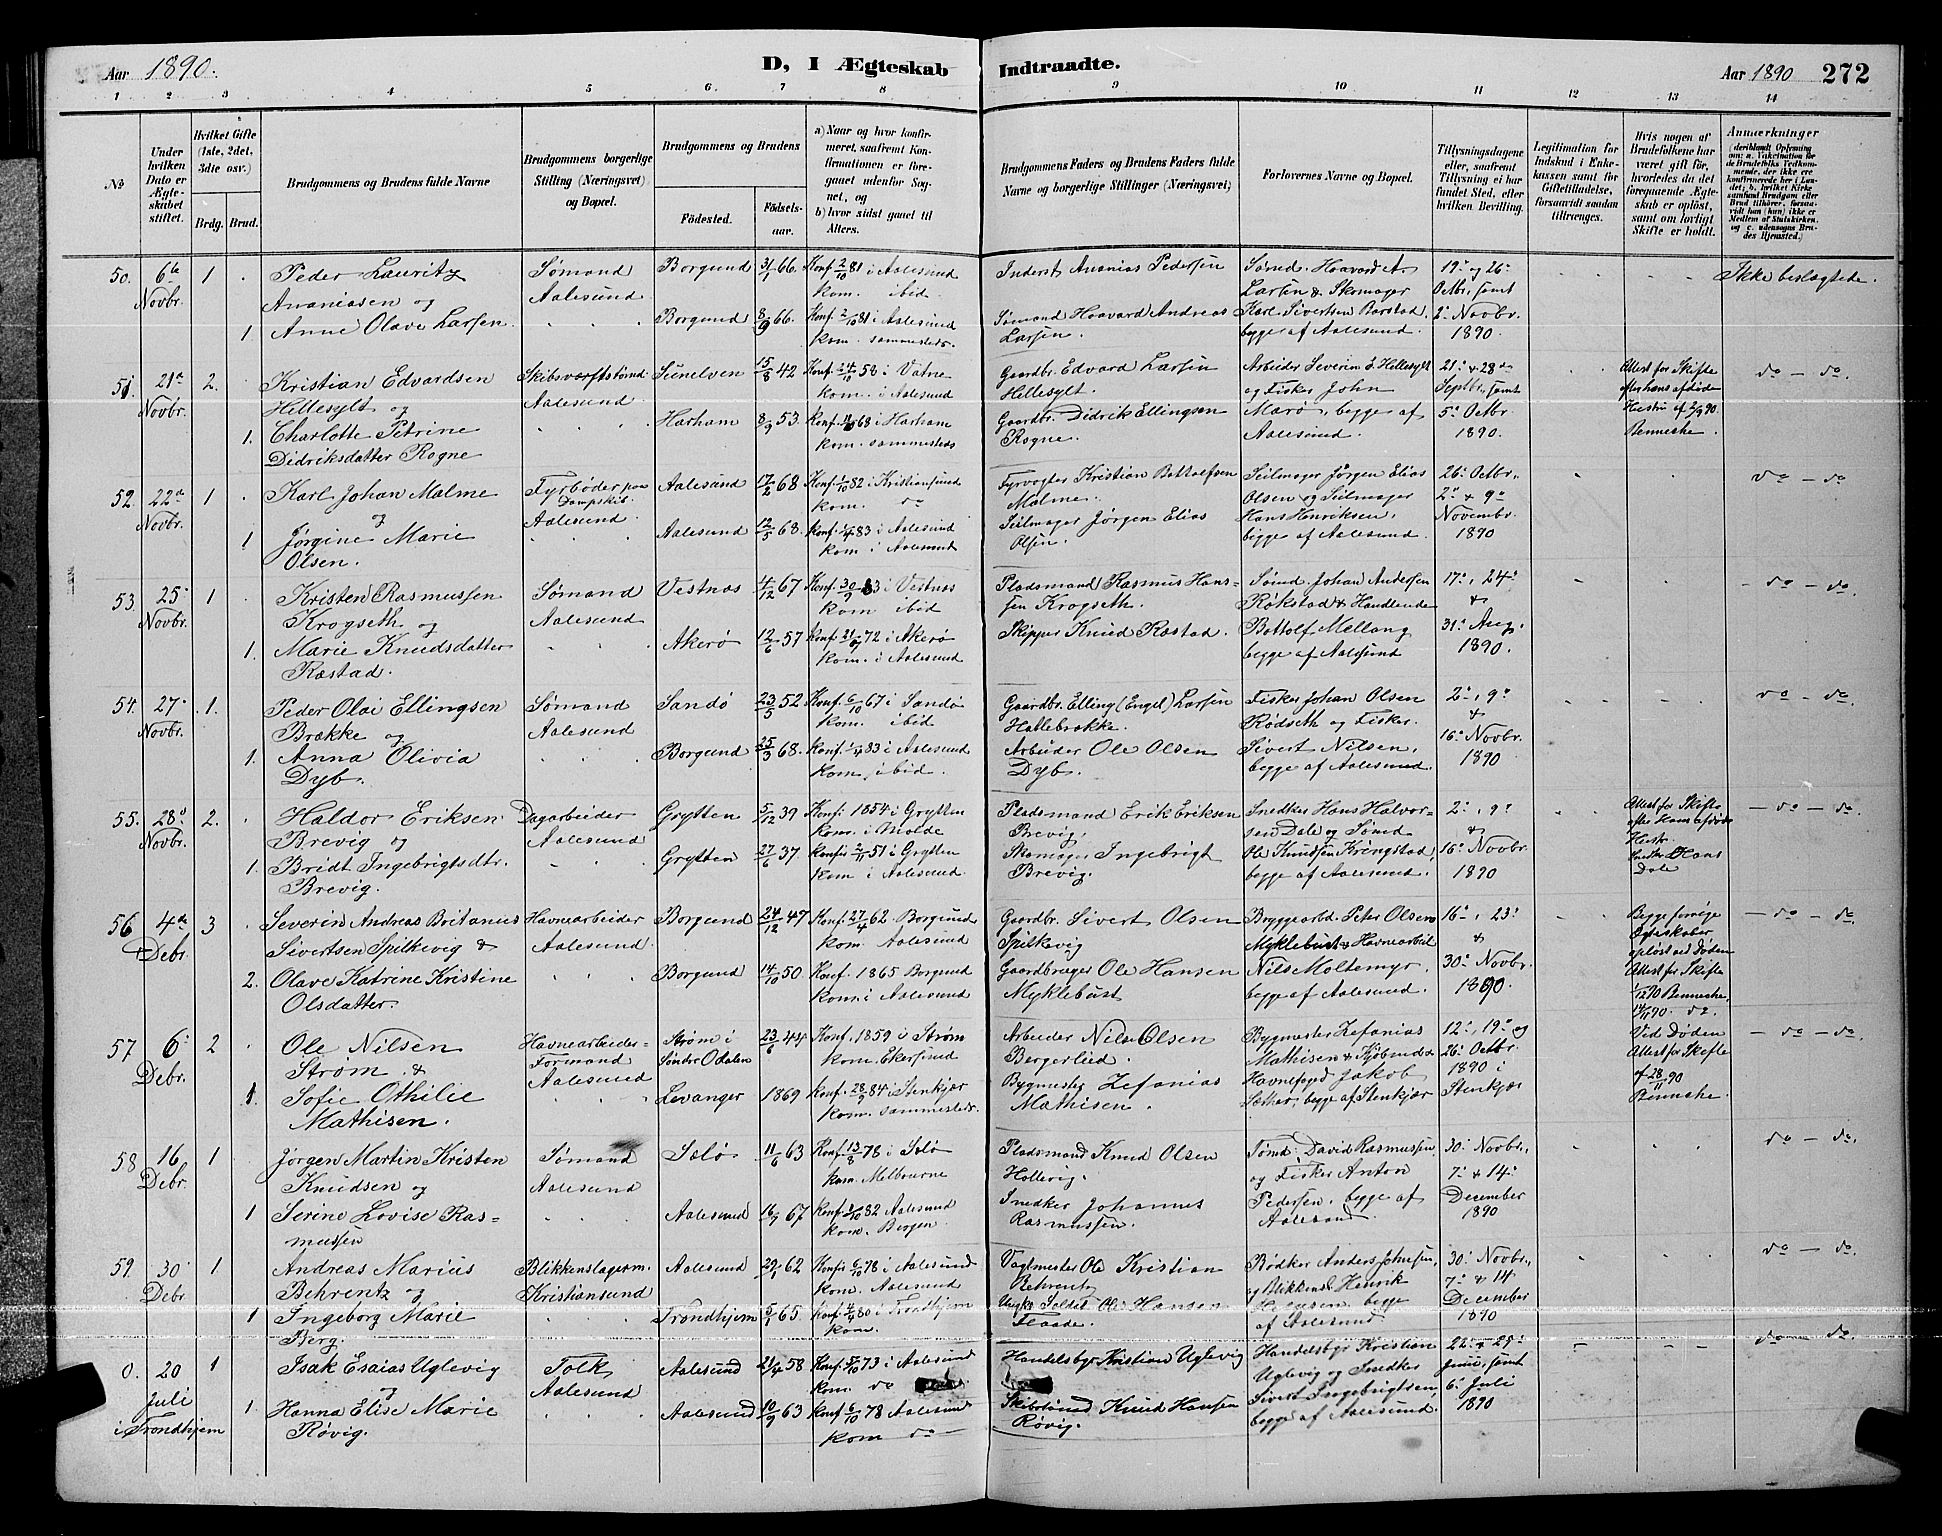 Aar 1890.
D, I Ægteskab Indtraadte.
Aar 1890 272
1 2 3 4 5 6. 7 8 9 10 11 12 13 14
№
Under hvilken Dato er Ægteskabet stiftet.
Hvilket Gifte (1ste, 2det, 3die osv.)
Brdg. Brud.
Brudgommens og Brudens fulde Navne
Brudgommens borgerlige Stilling (Næringsvei) og Bopæl.
Brudgommens og Brudens
Fødested. Fødsels-aar.
a) Naar og hvor konfirmeret, saafremt Konfirmationen er foregaaet udenfor Sognet, og
b) hvor sidst gaaet til Alters.
Brudgommens Faders og Brudens Faders fulde Navne og borgerlige Stillinger (Næringsvei)
Forlovernes Navne og Bopæl.
Tillysningsdagene eller, saafremt Tillysning ei har fundet Sted, efter hvilken Bevilling.
Legitimation for Indskud i Enkekassen samt for Giftetilladelse, forsaavidt saadan tiltrænges.
Hvis nogen af Brudefolkene har været gift før, hvorledes da det foregaaende Ægteskab er opløst, samt om lovligt Skifte er holdt.
Anmærkninger (deriblandt Oplysning om: a. Vakcination for de Brudefolks Vedkommende, der ikke ere konfirmerede her i Landet; b. hvilket Kirkesamfund Brudgom og Brud tilhører, forsaavidt han (hun) ikke er Medlem af Statskirken, og c. udensogns Brudes Hjemsted.)
50. 6te Novbr. 1 Peder Lauritz Ananiasen og
Sømand Aalesund Borgund 31/1 66. Konf. 2/10 81 i Aalesund kom. ibid.
Inderst Ananias Pedersen
Sømd. Haavard A. Larsen & Skomager Karl Sivertsen Barstad, begge af Aalesund.
19de og 26de Octbr. samt 2den Novbr. 1890.
Ikke beslægtede.
1. Anne Olave Larsen.
Borgund 8/9 66. Konf. 2/10 81 i Aalesund kom. sammesteds.
Sømand Haavard Andreas Larsen.
51. 21de Novbr. 2. Kristian Edvardsen Hellesylt og
Skibsværftstømd. Aalesund Sunelven 15/8 42 Konf. 24/10 58 i Vatne kom. i Aalesund
Gaardbr. Edvard Larsen Hellesylt
Arbeider Severin E. Hellesylt og Fisker John Marø, begge af Aalesund.
21de & 28de Septbr. samt 5te Octbr. 1890.
Attest for Skifte efter hans afdøde Hustru af 2/9 90. Benneche.
do — do
1. Charlotte Petrine Didriksdatter Rogne
Harham 8/9 53. Konf. 68 i Harham kom. sammesteds
Gaardbr. Didrik Ellingsen Rogne.
52. 22de Novbr. 1 Karl Johan Malme og
Fyrbøder paa Dampskib. Aalesund Aalesund 17/2 68 Konf. 1/10 82 i Kristiansund kom. do
Fyrvogter Kristian Bottolfsen Malme.
Seilmager Jørgen Elias Olsen og Seilmager Hans Henriksen, begge af Aalesund.
26de Octbr. 2den & 9de Novembr. 1890
do — do
1 Jørgine Marie Olsen.
Aalesund 12/5 68. Konf. 1/4 83 i Aalesund kom i Aalesund
Seilmager Jørgen Elias Olsen.
53. 25de Novbr. 1 Kristen Rasmussen Krogseth og
Sømand Aalesund Vestnæs 4/12 67 Konf. 30/9 83 i Vestnæs kom ibid
Pladsmand Rasmus Hanssen Krogseth.
Sømd. Johan Andersen Røkstad & Handlende Bottolf Mellang begge af Aalesund
17de, 24de & 31te Aug. 1890.
do — do.
1. Marie Knudsdatter Ræstad.
Akerø 12/6 57 Konf. 21/9 72 i Akerø kom. i Aalesund
Skipper Knud Ræstad.
54. 27de Novbr. 1. Peder Olai Ellingsen Brække og
Sømand Aalesund Sandø 23/5 52 Konf. 6/10 67 i Sandø kom. ibid.
Gaardbr. Elling (Engel) Larsen Hallebrække.
Fisker Johan Olsen Rødseth og Fisker Sivert Nilsen, begge af Aalesund.
2den, 9de & 16de Novbr. 1890
do — do.
1. Anna Olivia Dyb.
Borgund 25/3 68. Konf. 1/4 83 i Aalesund kom. ibid.
Arbeider Ole Olsen Dyb.
55. 28de Novbr. 2. Haldor Eriksen Brevig og
Dagarbeider Aalesund Grytten 5/12 39 Konf. 1854 i Grytten kom. i Molde
Pladsmand Erik Eriksen Brevig.
Snedker Hans Halvorsen Dale og Sømd. Ole Knudsen Kringstad, begge af Aalesund.
2den, 9de & 16de Novbr. 1890
Attest for Skifte efter Hans afdøde Hustr. Snedker Hans Dale
— do — do.
1. Bridt Ingebrigtsdtr. Brevig.
Grytten 27/6 37 Konf. 2/11 51 i Grytten kom i Aalesund.
Skomager Ingebrigt Brevig.
56 4de Debr. 3 Severin Andreas Britanius Sivertsen Spilkevig &
Havnearbeider Aalesund. Borgund 24/12 47 Konf. 27/4 62 Borgund kom. Aalesund
Gaardbr. Sivert Olsen Spilkevig
Bryggearbd. Peter Olsen Myklebust & Havnearbeid. Nils Moltemyr. begge af Aalesund.
16de, 23de & 30te Novbr. 1890.
Begge forrige Egteskaber opløst ved Døden Attest for Skifte 1/12 90 Benneche, 14/11 90. do.
— do — do.
2. Olave Katrine Kristine Olsdatter.
Borgund 14/10 50 Konf. 1865 Borgund kom i Aalesund
Gaardbruger Ole Hansen Myklebust
57 6te Debr. 2 Ole Nilsen Strøm &
Havnearbeider-Formand Aalesund Strøm i Søndre Odalen 23/6 44 Konf. 1859 i Strøm kom. Ekersund
Arbeider Nils Olsen Bergerlied.
Bygmester Zefanias Mathisen & Kjøbmd & Havnefoged Jakob Sæther, begge af Stenkjær
12te, 19de og 26de Octbr. 1890 i Stenkjær
Ved Døden Attest for Skifte af 28/11 90 Benneche.
— do — do.
1. Sofie Othilie Mathisen.
Levanger 1869 Konf. 28/9 84 i Stenkjær kom. sammesteds.
Bygmester Zefanias Mathisen.
58 16 Debr. 1 Jørgen Martin Kristen Knudsen og
Sømand Aalesund Solø 11/6 63 Konf. 13/8 78 i Solø kom. Melbourne
Pladsmand Knud Olsen Hollevig.
Tømd. David Rasmussen og Fisker Anton Pedersen, begge af Aalesund
30te Novbr., 7de & 14de December 1890
do — do.
1 Serine Lovise Rasmussen
Aalesund 16/9 67 Konf. 1/10 82 Aalesund kom. Bergen
Snedker Johannes Rasmussen.
59. 30 Debr 1 Andreas Marius Behrentz og
Blikkenslagerm. Kristiansund Aalesund 29/1 62 Konf. 6/10 78 i Aalesund kom. Aalesund
Vagtmester Ole Kristian Behrentz
Bødker Anders Johnsen og Blikkensl. Henrik begge af Aalesund
30te Novbr., 7de & 14 December 1890
do — do.
1 Ingeborg Marie Berg.
Trondhjem 5/1 65. Konf. 4/4 80 i Trondhjem kom.
Ole Hansen Flaade.
0. 20 Juli i Trondhjem 1 Isak Esaias Uglevig &
Tolk Aalesund Aalesund 21/4 58 Konf. 5/10 73 i Aalesund kom. do
Handelsbgr Kristian Uglevig
Handelsbgr Kristian Uglevig og Snedker Sivert Ingebrigtsen, begge af Aalesund.
22de & 29de Juni, samt 6te Juli 1890
do — do.
1 Hanna Elise Marie Røvig.
Aalesund 10/9 63 Konf. 6/10 78 Aalesund kom do
Skibstømd Knud Hansen Røvig.